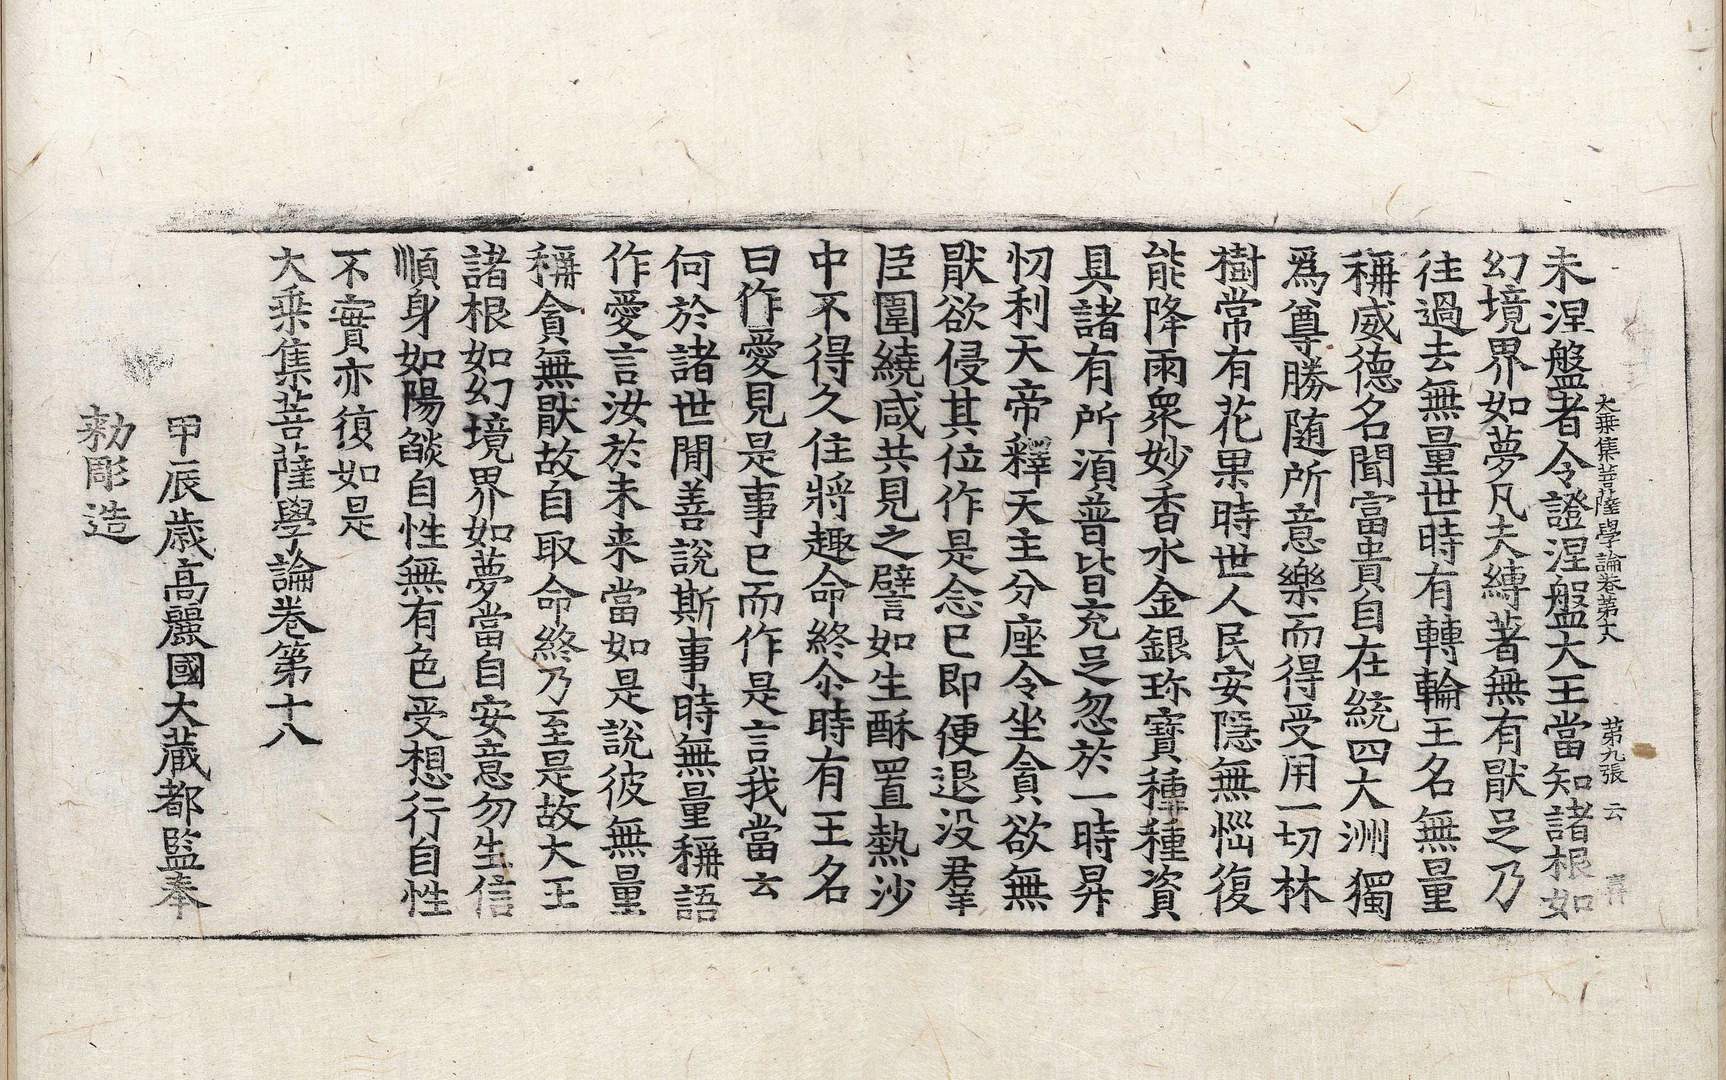 大乗集菩薩學論卷第十八 第九張 云
未涅盤者令證涅盤大王當知諸根如
幻境界如夢凡夫縛著無有猒足乃
往過去無量世時有轉輪王名無量
稱威德名聞富貴自在統四大洲獨
爲尊勝随所意樂而得受用一切林
樹常有花果時世人民安隱無惱復
能降雨衆妙香水金銀珎寶種種資
具諸有所湏普皆充足忽於一時昇
忉利天帝釋天主分座令坐貪欲無
猒欲侵其位作是念已即便退没羣
臣圍繞咸共見之譬如生酥置熱沙
中不得久住將趣命終尒時有王名
曰作愛見是事已而作是言我當云
何於諸世閒善說斯事時無量稱語
作愛言汝於未来當如是說彼無量
稱貪無猒故自取命終乃至是故大王
諸根如幻境界如夢當自安意勿生信
順身如陽燄自性無有色受想行自性
不實亦復如是
大乗集菩薩學論卷第十八
甲辰歳高麗國大蔵都監奉
勑彫造